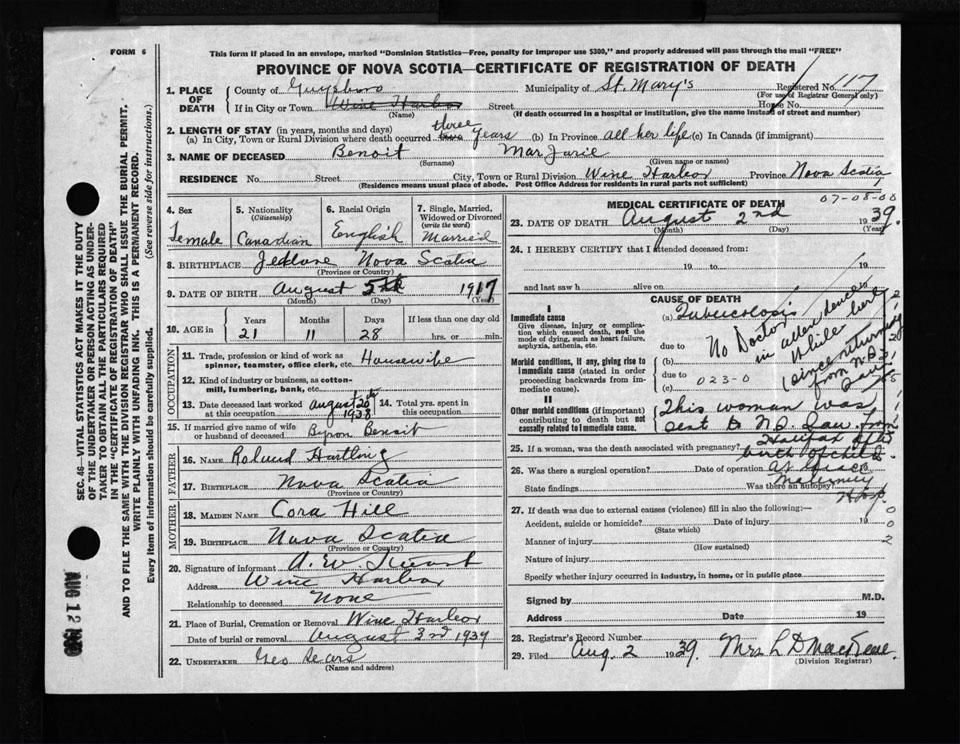 FORM 6
This form if placed in an envelope, marked "Dominion Statistics—Free, penalty for improper use $300," and properly addressed will pass through the mail "FREE"
PROVINCE OF NOVA SCOTIA—CERTIFICATE OF REGISTRATION OF DEATH
SEC. 46—VITAL STATISTICS ACT MAKES IT THE DUTY OF THE UNDERTAKER OR PERSON ACTING AS UNDERTAKER TO OBTAIN ALL THE PARTICULARS REQUIRED IN THE "CERTIFICATE OF REGISTRATION OF DEATH"
AND TO FILE THE SAME WITH THE DIVISION REGISTRAR WHO SHALL ISSUE THE BURIAL PERMIT.
WRITE PLAINLY WITH UNFADING INK. THIS IS A PERMANENT RECORD.
Every item of information should be carefully supplied. (See reverse side for instructions.)
AUG 12
1. PLACE OF DEATH County of Guysboro Municipality of St. Mary's Registered No. 117
(For use of Registrar General only)
If in City or Town Wine Harbor Street House No.
(Name) (If death occurred in a hospital or institution, give the name instead of street and number)
2. LENGTH OF STAY (in years, months and days)
(a) In City, Town or Rural Division where death occurred three years (b) In Province all her life (c) In Canada (if immigrant)
3. NAME OF DECEASED Benoit MarJarie
(Surname) (Given name or names)
RESIDENCE No. Street City, Town or Rural Division Wine Harbor Province Nova Scotia
(Residence means usual place of abode. Post Office Address for residents in rural parts not sufficient)
4. Sex Female
5. Nationality (Citizenship) Canadian
6. Racial Origin English
7. Single, Married, Widowed or Divorced (write the word) Married
8. BIRTHPLACE Jeddore Nova Scotia
(Province or Country)
9. DATE OF BIRTH August 5th 1917
(Month) (Day) (Year)
10. AGE in Years Months Days If less than one day old
21 11 28 hrs. or min.
OCCUPATION
11. Trade, profession or kind of work as spinner, teamster, office clerk, etc. Housewife
12. Kind of industry or business, as cotton-mill, lumbering, bank, etc.
13. Date deceased last worked at this occupation August 20th 1938
14. Total yrs. spent in this occupation
15. If married give name of wife or husband of deceased Byron Benoit
FATHER
16. NAME Roland Hartling
17. BIRTHPLACE Nova Scotia
(Province or Country)
MOTHER
18. MAIDEN NAME Cora Hill
19. BIRTHPLACE Nova Scotia
(Province or Country)
20. Signature of informant A. W.
Address Wine Harbor
Relationship to deceased None
21. Place of Burial, Cremation or Removal Wine Harbor
Date of burial or removal August 3rd 1939
22. UNDERTAKER Geo Sears
(Name and address)
MEDICAL CERTIFICATE OF DEATH 07-08-00
23. DATE OF DEATH August 2nd 1939.
(Month) (Day) (Year)
24. I HEREBY CERTIFY that I attended deceased from:
19 to 19
and last saw h alive on 19
CAUSE OF DEATH
I
Immediate cause
Give disease, injury or complication which caused death, not the mode of dying, such as heart failure, asphyxia, asthenia, etc.
Morbid conditions, if any, giving rise to immediate cause (stated in order proceeding backwards from immediate cause).
II
Other morbid conditions (if important) contributing to death but not causally related to immediate cause.
(a) Tuberculosis
due to
(b)
due to
(c) 023-0
No Doctor in attendence
While here
(since returning from N.S. San)
This woman was sent to N.S. San. from Halifax after birth of child at Grace Maternity Hosp.
25. If a woman, was the death associated with pregnancy?
26. Was there a surgical operation? Date of operation 19
State findings Was there an autopsy?
27. If death was due to external causes (violence) fill in also the following:—
Accident, suicide or homicide? Date of injury 19
(State which)
Manner of injury
(How sustained)
Nature of injury
Specify whether injury occurred in industry, in home, or in public place
Signed by M.D.
Address Date 19
28. Registrar's Record Number
29. Filed Aug. 2 1939. Mrs L D
(Division Registrar)